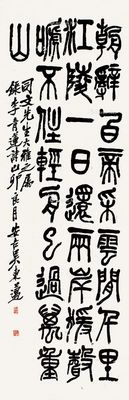 朝辭白帝采雲間千里
江陵一日還兩岸猨聲
嗁不住輕舟已過萬重
山
先生大雅之屬
錄李青蓮詩卯良月安吉吳東邁